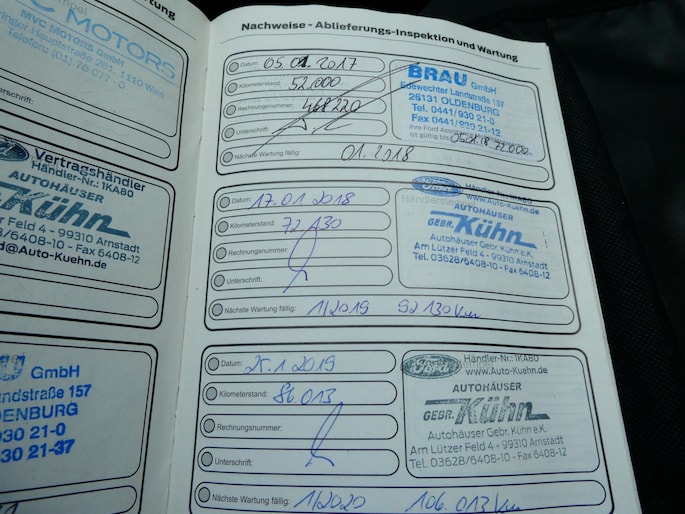 Wartung
MVC MOTORS
MVC MOTORS GmbH
1110 Wien
Telefon (01) 76 077 - 0
Unterschrift:
Ford Vertragshändler
Händler-Nr.: 1KA80
AUTOHÄUSER
Kühn
Feld 4 - 99310 Arnstadt
/6408-10 - Fax 6408-12
d@Auto-Kuehn.de
GmbH
andstraße 157
LDENBURG
930 21-0
930 21-37
Nachweise - Ablieferungs-Inspektion und Wartung
Datum: 05.01.2017
Kilometerstand: 52.000
Rechnungsnummer: 468220
Unterschrift:
Nächste Wartung fällig: 01.2018
BRAU GmbH
Edewechter Landstraße 157
26131 OLDENBURG
Tel. 0441/930 21-0
Fax 0441/930 21-12
Ihre Ford Assistance
ist gültig bis: 05.01.18 72.000
Datum: 17.01 2018
Kilometerstand: 72 130
Rechnungsnummer:
Unterschrift:
Nächste Wartung fällig: 1/2019 92 130 km
Ford
www.Auto-Kuehn.de
AUTOHÄUSER
GEBR. Kühn
Autohäuser Gebr. Kühn e.K.
Am Lützer Feld 4 - 99310 Arnstadt
Tel. 03628/6408-10 - Fax 6408-12
Datum: 25.1 2019
Kilometerstand: 86 013
Rechnungsnummer:
Unterschrift:
Nächste Wartung fällig: 1/2020 106.013 km
Ford Händler-Nr.: 1KA80
www.Auto-Kuehn.de
AUTOHÄUSER
GEBR. Kühn
Autohäuser Gebr. Kühn e.K.
Am Lützer Feld 4 - 99310 Arnstadt
Tel. 03628/6408-10 - Fax 6408-12